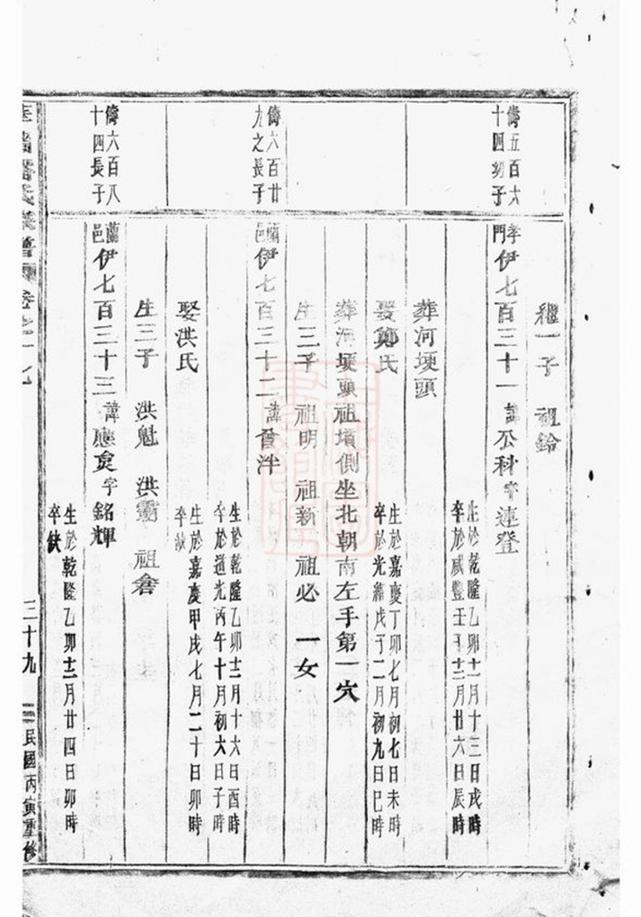 繼一子 祖鈴
儔五百六
十四幼子
孝門 伊七百三十一 諱公科 字連登
生於乾隆乙卯十一月十三日戌時
卒於咸豐壬子十二月廿六日辰時
葬河埂頭
娶鄭氏
生於嘉慶丁卯七月初七日未時
卒於光緒戊子二月初九日巳時
葬河埂頭祖墳側坐北朝南左手第一穴
生三子 祖明 祖新 祖必 一女
儔六百廿
九之長子
蘭邑 伊七百三十二 諱 泮
生於乾隆乙卯十二月十六日酉時
卒於道光丙午十月初六日子時
娶洪氏
生於嘉慶甲戌七月二十日卯時
卒缺
生三子 洪魁 洪霸 祖詹
儔六百八
十四長子
蘭邑 伊七百三十三 諱應 字銘輝
生於乾隆乙卯十二月廿四日卯時
卒缺
氏 譜 卷之十九
三十九
民國丙寅重修